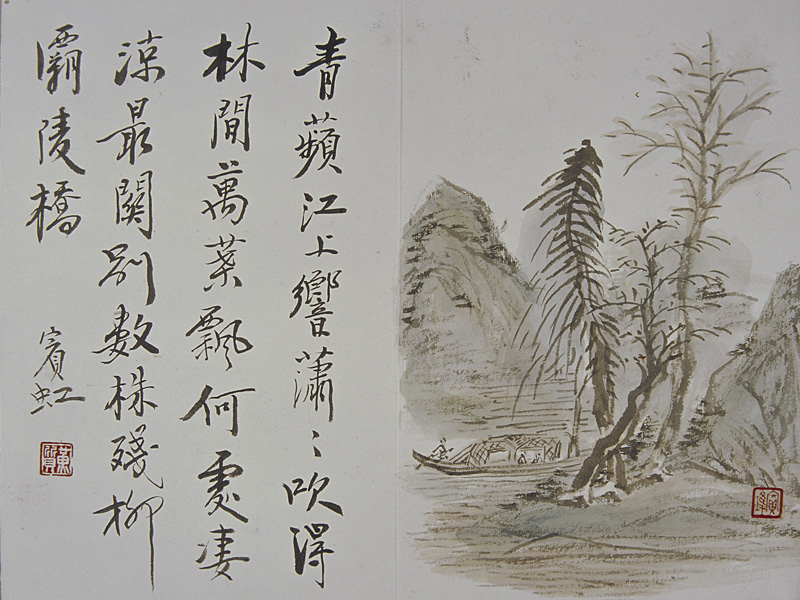 青蘋江上響蕭〻吹得
林間萬葉飄何處淒
涼最關別數株殘柳
灞陵橋
賓虹